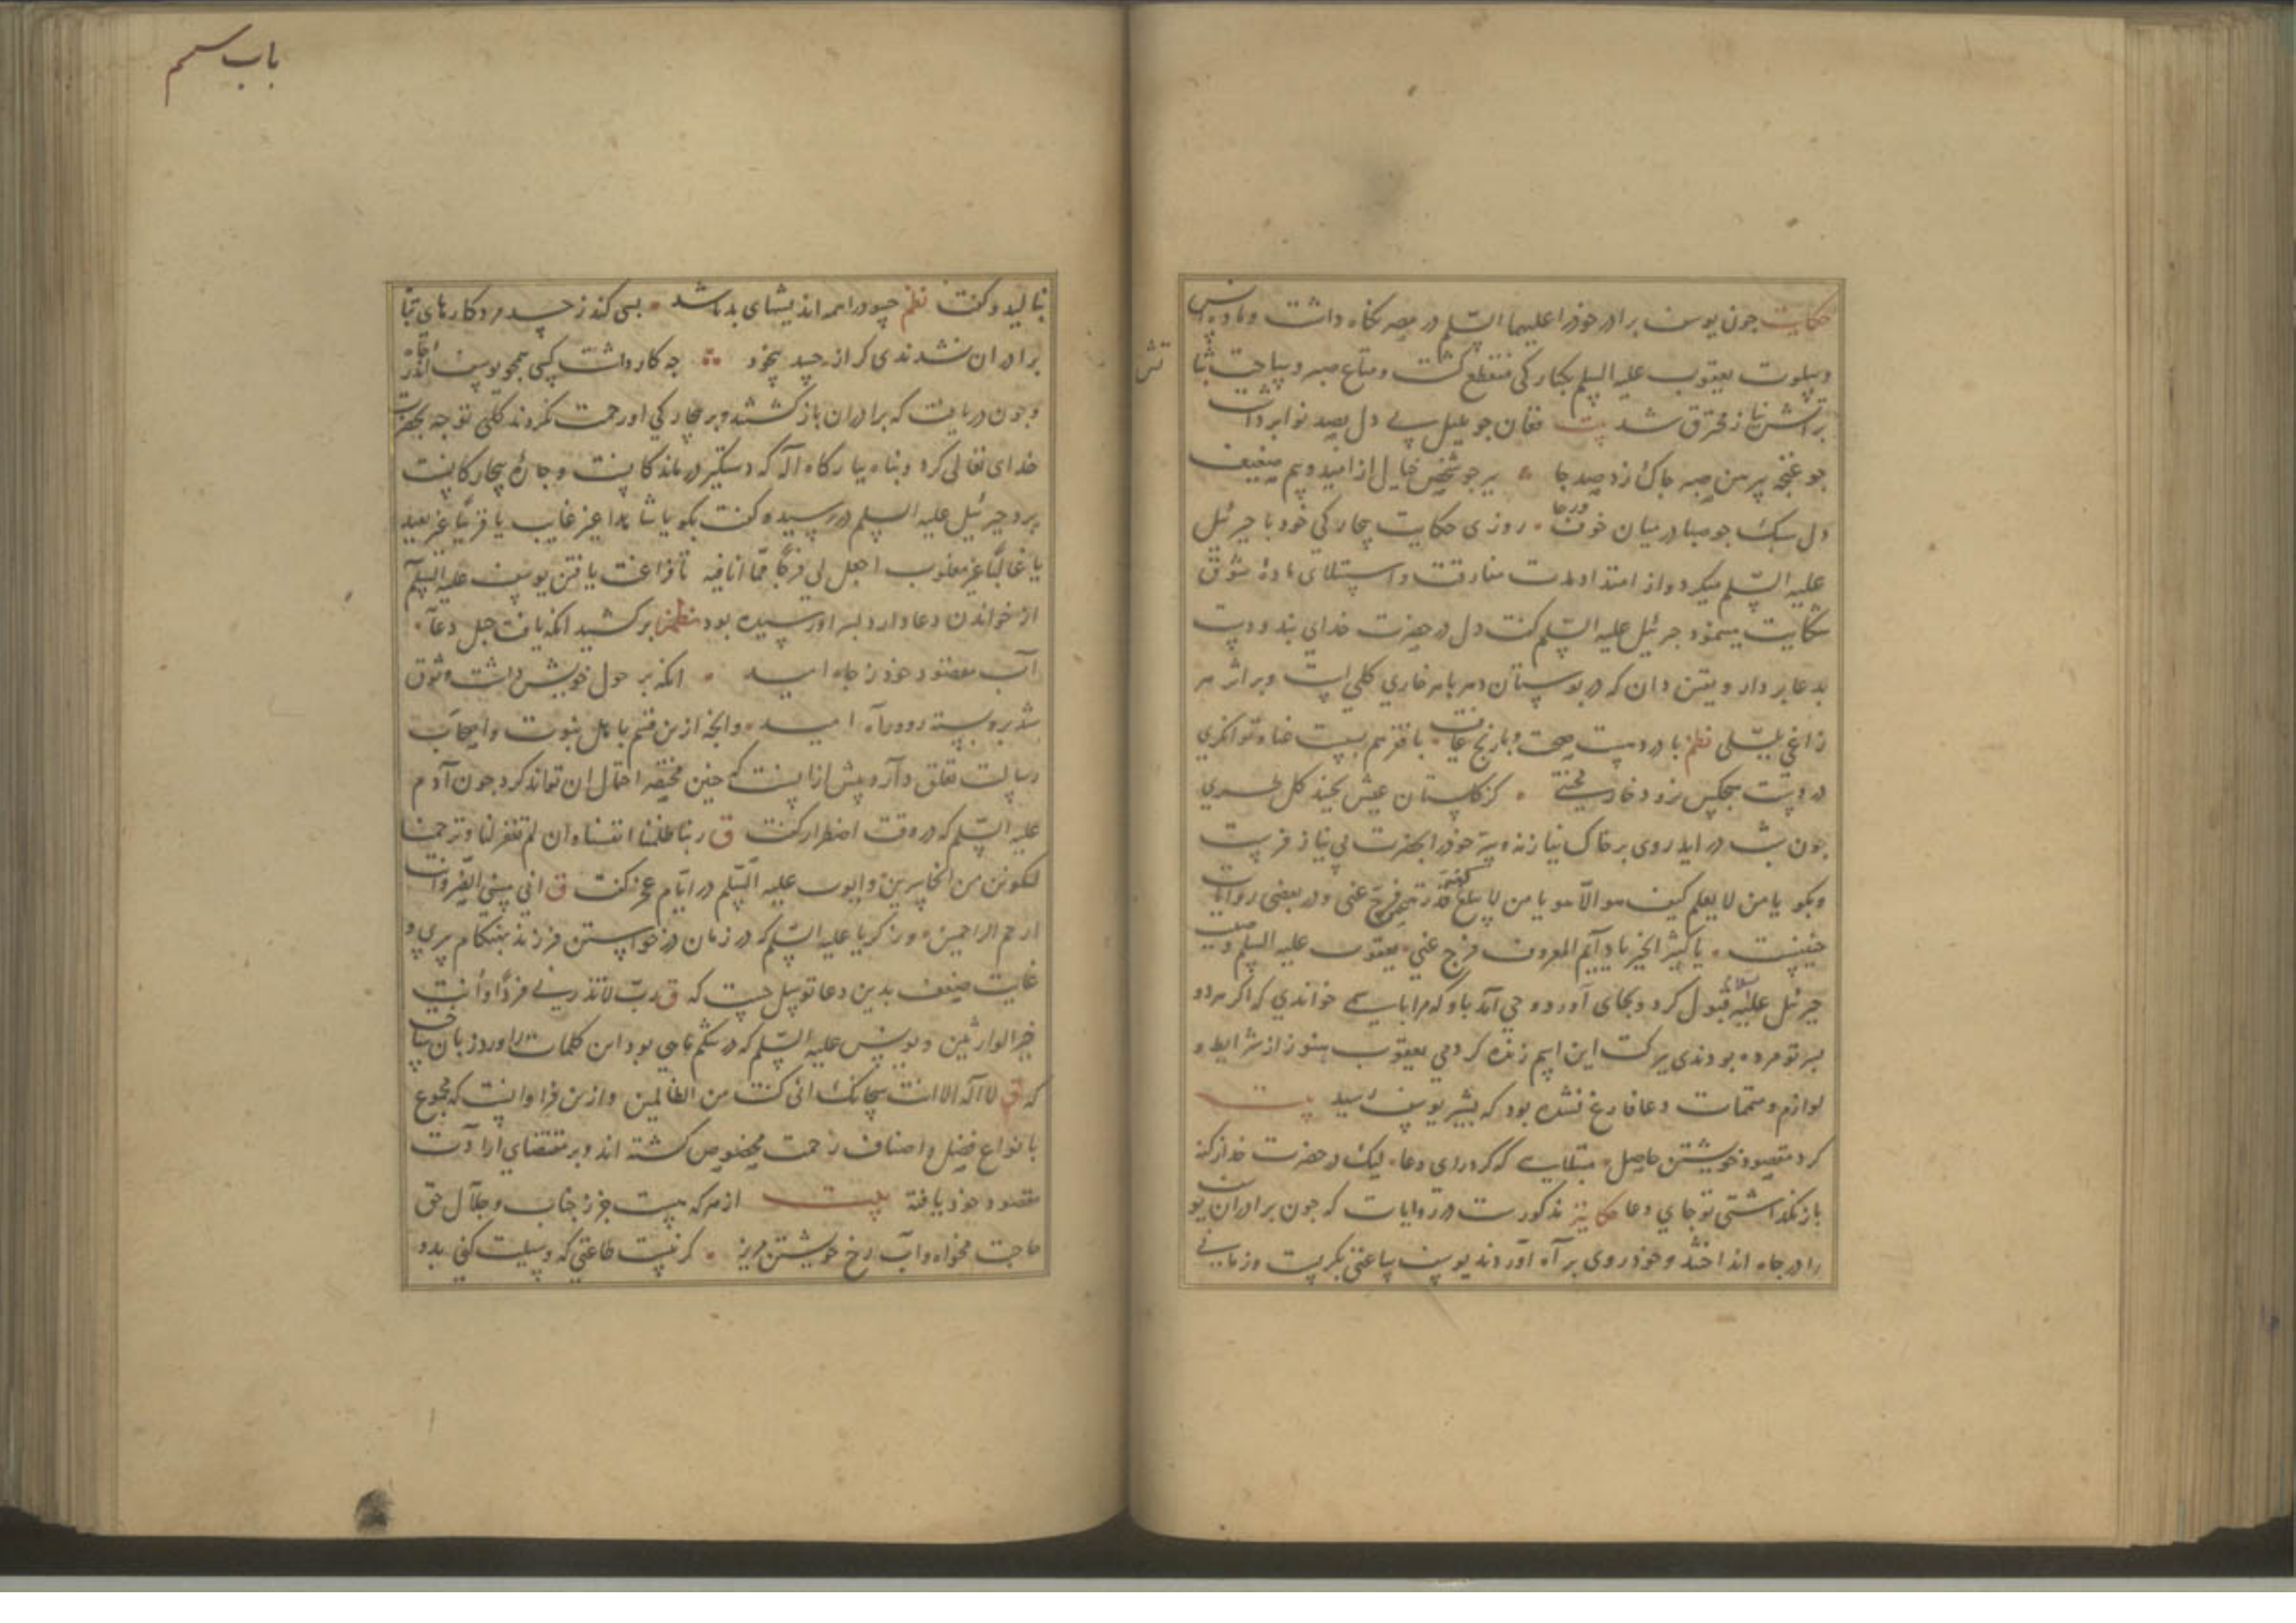 حکایت جون یوسف برادر خوذ را علیهما السّلم در مصر نکاه داشت و مادهٔ انس
وسلوت یعقوب علیه السلم بیکبارکی منقطع کشت ومتاع صبر و ثبات
بر آتش نیاز محترق شد بیت فغان جو بلبل بی دل بصد نوا برداشت
جو غنجه پیرهن صبر جاک زد صد جا بر جو شخص خیال از امید وبیم ضعیف
دل سبک جو صبا در میان خوف ورجا روزی حکایت بیجارکی خود با جبرئیل
علیه السّلم میکرد واز امتداد مدت مفارقت واستیلای مادهٔ شوق
شکایت مینمود جبرئیل علیه السّلم کفت دل در حضرت خدای بند ودست
بدعا بردار ویقین دان که در بوستان دهر با هر خاری کلی است وبر اثر هر
زاغی بلبلی نظم با درد هست صحت وبا رنج عافیت با فقر هم بیست غنا وتوانکری
در دست هیجکس نرود خار محنتی کز کلستان عیش نجیند کل طری
جون شب در اید روی بر خاک نیاز نه خوذ را بحضرت بی نیاز فرست
وبکو یا من لا یعلم کیف هو الّا هو یا من لا یبلغ قدرته غیره فرّج عنی ودر بعضی روایات
جنینست یا کثیر الخیر یا دایم المعروف فرج عنی یعقوب علیه السلم وصیت
جبرئل علیه السلام قبول کرد وبجای آورد وحی آمد باو که مرا باسمی خواندی که اکر هر دو
بسر تو مرده بودندی ببرکت این اسم زنده کردمی یعقوب هنوز از شرایط و
لوازم ومتممات دعا فارغ نشده بود که بشیر یوسف رسید بیت
کرد مقصود خویشتن حاصل مبتلایی که کرد رای دعا لیک در حضرت خداز کنه
باز نکذاشتی تو جای دعا حکایت مذکورست در روایات که جون برادران یوسف
را در جاه انداختند وخوذ روی براه آوردند یوسف ساعتی بکریست وزمانی
باب سیم
بنالید وکفت نظم حسود را همه اندیشهای بد باشد بسی کند ز حسد مرد کارهای تباه
برادران نشدندی کر از حسد بیخود جه کار داشت کسی همجو یوسف اندر جاه
وجون دریافت که برادران باز کشتند وبر بیجارکی او رحمت نکردند بکلی توجه بحضرت
خدای تعالی کرد وبناه ببارکاه اله که دستکیر درماندکانست وجارهٔ بیجارکانست
برد جبرئیل علیه السلم در رسید وکفت بکو یا شاهدا غیر غایب یا قریبًا غیر بعید
یا غالبًا غیر مغلوب اجعل لی فرجًا ممّا انا فیه تا فراغت یافتن یوسف علیه السلم
از خواندن دعا وارد بسر او رسیده بود نظم برکشید انکه یافت حبل دعا
آب مقصود خود ز جاه امید انکه بر حول خویش داشت وثوق
شد برو بسته رود وراه امید وانجه ازین قسم باهل نبوت واصحاب
رسالت تعلق دارد پیش ازانست که جنین مختصر احتمال ان تواند کرد جون آدم
علیه السّلم که در وقت اضطرار کفت ق ربنا ظلمنا انفسنا وان لم تغفر لنا وترحمنا
لنکونن من الخاسرین وایوب علیه السّلم در ایّام عجز کفت ق انی مسنی الضّر وانت
ارحم الراحمین وزکریا علیه السّلم که در زمان درخواستن فرزند بهنکام پیری و
غایت ضعف بدین دعا توسل جست که ق ربّ لا تذرنی فردًا وانت
خیر الوارثین ویونس علیه السّلم که در شکم ماهی بود این کلمات را ورد زبان ساخت
که ق لا اله الا انت سبحانک انی کنت من الظالمین وازین فراوانست که مجموع
بانواع فضل واصناف رحمت مخصوص کشته اند وبر مقتضای ارادت
مقصود خود یافته بیت از هر که هست جز ز جناب وجلال حق
حاجت مخواه وآب رخ خویشتن مریز کر نیست طاعتی که وسیلت کنی بدو